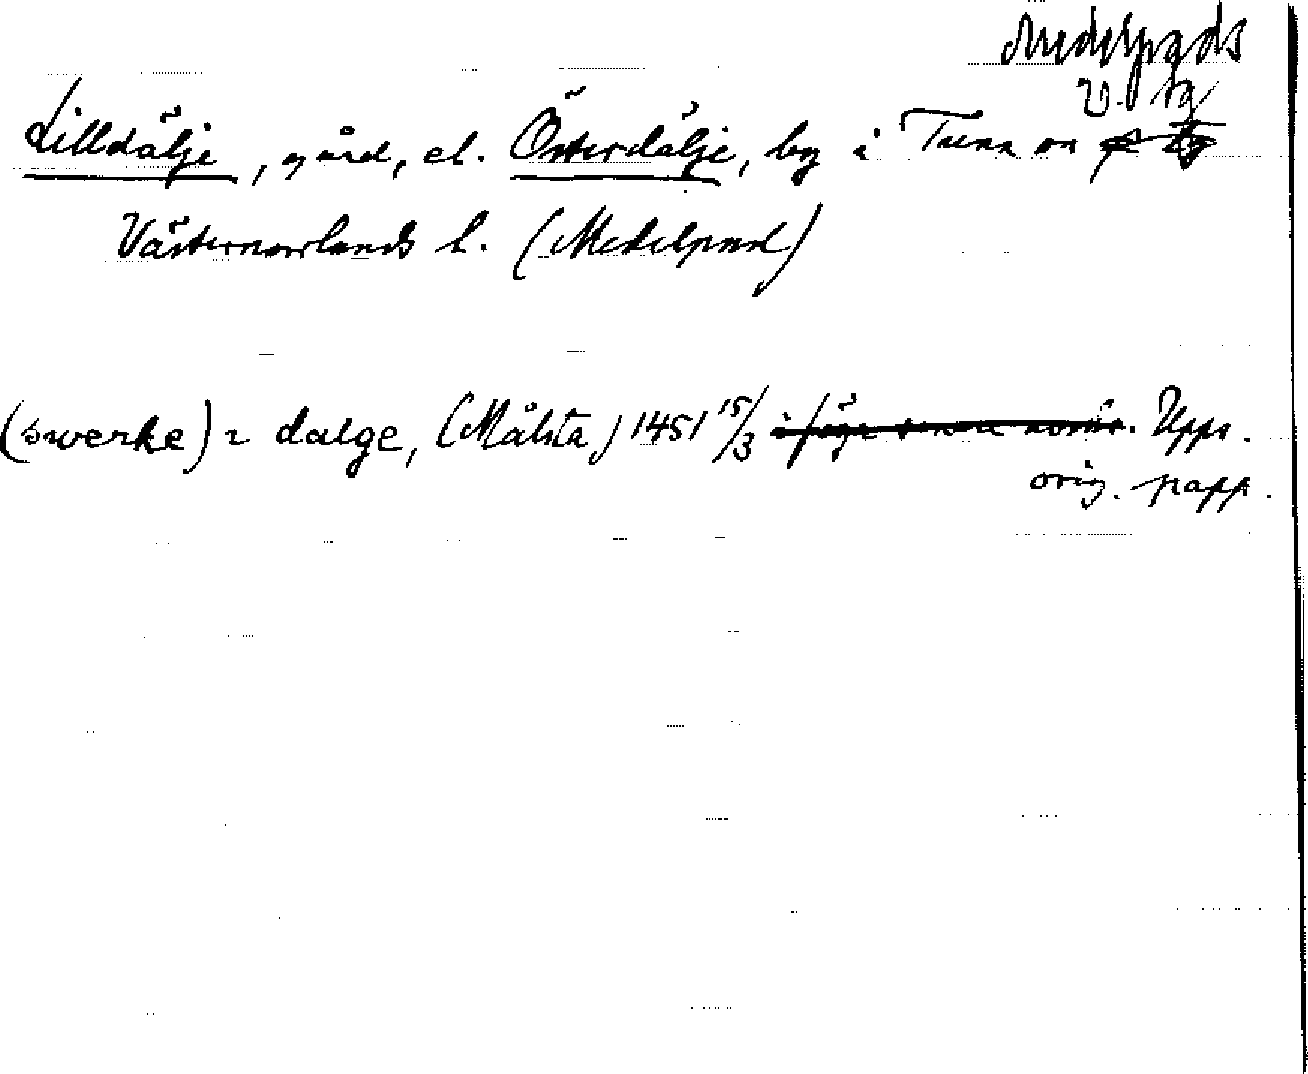 Medelpads
v. tg
Lilldälje, gård, el. Österdälje, by i Tuna sn
Västernorrlands l. (Medelpad)
(swerke) i dalge, (Målsta) 1451 15/3 Upps.
orig. papp.